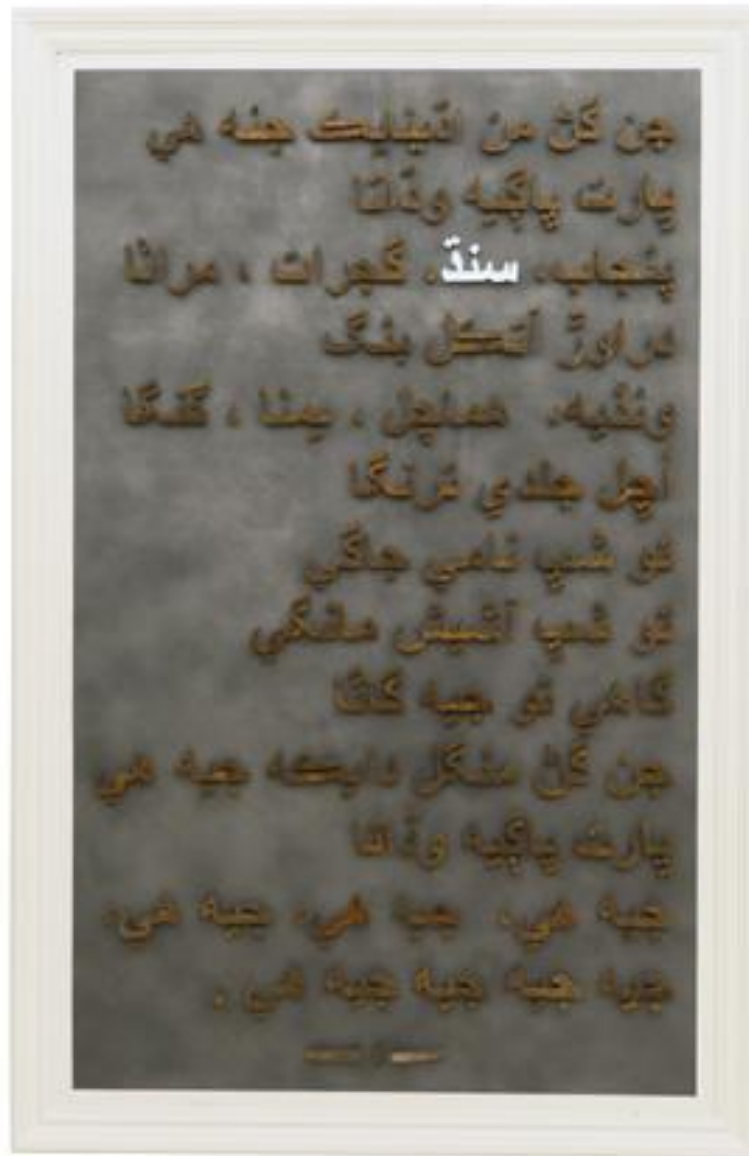 جن گڻ من اڌينايڪ جيه هي
ڀارت ڀاڳيه وڌاتا
پنجاب، سنڌ، گجرات ، مراٺا
دراوڙ اُتڪل بنگ
ونڌيه، هماچل ، يمنا ، گنگا
اُڇل جلدي ترنگا
تو شڀ نامي جاڳي
تو شڀ آشيش مانگي
گاهي تو جيه گاٿا
جن گڻ منگل دايڪه جيه هي
ڀارت ڀاڳيه وڌاتا
جيه هي، جيه هي، جيه هي،
جيه جيه جيه جيه هي .